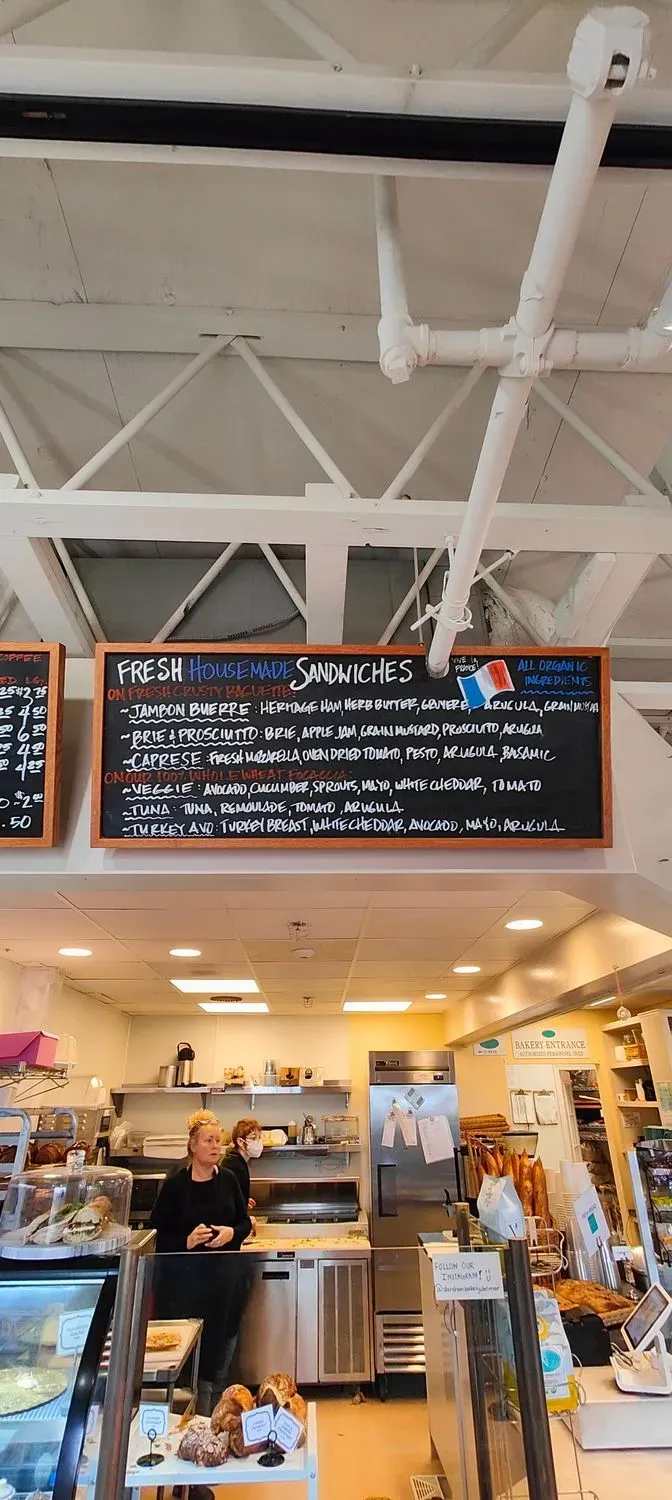 OFFEE
FRESH HOUSEMADE SANDWICHES
VIVE la FRANCE!
ALL ORGANIC
INGREDIENTS
ON FRESH CRUSTY BAGUETTE:
~JAMBON BUERRE: HERITAGE HAM, HERB BUTTER, GRUYERE, ARUGULA, GRAIN MUSTARD
~BRIE & PROSCIUTTO: BRIE, APPLE JAM, GRAIN MUSTARD, PROSCIUTO, ARUGULA
~CAPRESE: FRESH MOZZARELLA, OVEN DRIED TOMATO, PESTO, ARUGULA BALSAMIC
ON OUR 100% WHOLE WHEAT FOCACCIA:
~VEGGIE: AVOCADO, CUCUMBER, SPROUTS, MAYO, WHITE CHEDDAR, TOMATO
~TUNA: TUNA, REMOULADE, TOMATO, ARUGULA
~TURKEY AVO: TURKEY BREAST, WHITE CHEDDAR, AVOCADO, MAYO, ARUGULA
BAKERY ENTRANCE
AUTHORIZED PERSONNEL ONLY
FOLLOW OUR
INSTAGRAM!
@darshanbakerydelmar